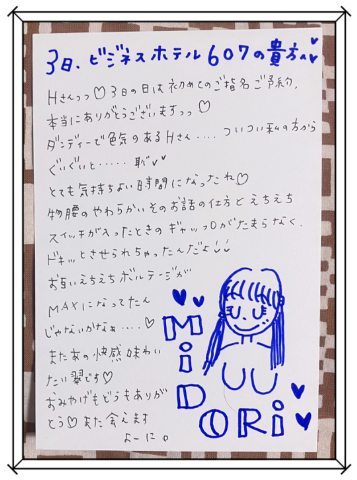 3日、ビジネスホテル607の貴方へ
Hさんっっ♡3日の日は初めてのご指名ご予約、
本当にありがとうございますっっ♡
ダンディーで色気のあるHさん....ついつい私の方から
ぐいぐいと.....恥
とても気持ちよい時間になったね♡
物腰のやわらかいそのお話の仕方とえちえち
スイッチが入ったときのギャップがたまらなく、
ドキッとさせられちゃったんだよ
お互いえちえちボルテージが
MAXになってたん
じゃないかなぁ....♡
またあの快感味わい
たい翠です♡
おみやげもどうもありが
とう♡また会えます
よーに。
MiDORi